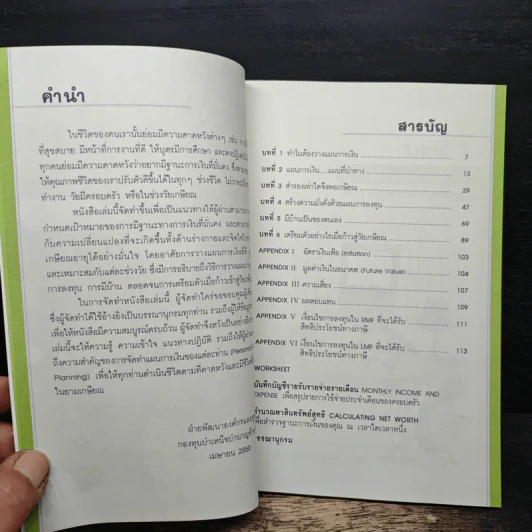 คำนำ
ในชีวิตของคนเรานั้นย่อมมีความคาดหวังต่างๆ เช่น
ที่สุขสบาย มีหน้าที่การงานที่ดี ให้บุตรมีการศึกษา
ทุกคนย่อมมีความคาดหวังว่าอยากมีฐานะการเงินที่มั่นคง
ให้คุณภาพชีวิตของเราปรับตัวดีขึ้นได้ในทุกๆ ช่วงชีวิต
ทำงาน วัยมีครอบครัว หรือในช่วงวัยเกษียณ
หนังสือเล่มนี้จัดทำขึ้นเพื่อเป็นแนวทางให้ผู้อ่านสามารถ
กำหนดเป้าหมายของการมีฐานะทางการเงินที่มั่นคง
กับความเปลี่ยนแปลงที่จะเกิดขึ้นทั้งด้านร่างกายและจิตใจ
เกษียณอายุได้อย่างมั่นใจ โดยอาศัยการวางแผนการเงินที่
และเหมาะสมกับแต่ละช่วงวัย ซึ่งมีการอธิบายถึงวิธีการวางแผน
การลงทุน การมีบ้าน ตลอดจนการเตรียมตัวเมื่อก้าวเข้าสู่วัย
ในการจัดทำหนังสือเล่มนี้ ผู้จัดทำใคร่ขอขอบคุณ
ซึ่งผู้จัดทำได้ใช้อ้างอิงเป็นบรรณานุกรมทุกท่าน รวมถึงผู้ให้ข้อมูล
เพื่อให้หนังสือมีความสมบูรณ์ครบถ้วน ผู้จัดทำจึงหวังเป็นอย่างยิ่ง
เล่มนี้จะให้ความรู้ ความเข้าใจ แนวทางปฏิบัติ รวมถึงให้ผู้อ่าน
ถึงความสำคัญของการจัดทำแผนการเงินของแต่ละท่าน (Personal
Planning) เพื่อให้ทุกท่านดำเนินชีวิตตามที่คาดหวังและมีชีวิต
ในยามเกษียณ
ฝ่ายพัฒนาองค์กรและ
กองทุนบำเหน็จบำนาญ
เมษายน 2550
สารบัญ
บทที่ 1 ทำไมต้องวางแผนการเงิน 7
บทที่ 2 แผนการเงิน ... แผนที่นำทาง 13
บทที่ 3 สำรองเท่าใดจึงพอเกษียณ 29
บทที่ 4 สร้างความมั่งคั่งด้วยแผนการลงทุน 47
บทที่ 5 มีบ้านเป็นของตนเอง 69
บทที่ 6 เตรียมตัวอย่างไรเมื่อก้าวสู่วัยเกษียณ 89
APPENDIX I อัตราเงินเฟ้อ (Inflation) 103
APPENDIX II มูลค่าเงินในอนาคต (Future Value) 104
APPENDIX III ความเสี่ยง 107
APPENDIX IV ผลตอบแทน 109
APPENDIX V เงื่อนไขการลงทุนใน RMF ที่จะได้รับ 111
สิทธิประโยชน์ทางภาษี
APPENDIX VI เงื่อนไขการลงทุนใน LMF ที่จะได้รับ 113
สิทธิประโยชน์ทางภาษี
WORKSHEET
บันทึกบัญชีรายรับรายจ่ายรายเดือน MONTHLY INCOME AND
EXPENSE เพื่อสรุปรายการใช้จ่ายประจำเดือนของครอบครัว
คำนวณหาสินทรัพย์สุทธิ CALCULATING NET WORTH
เพื่อสำรวจฐานะการเงินของคุณ ณ เวลาใดเวลาหนึ่ง
บรรณานุกรม